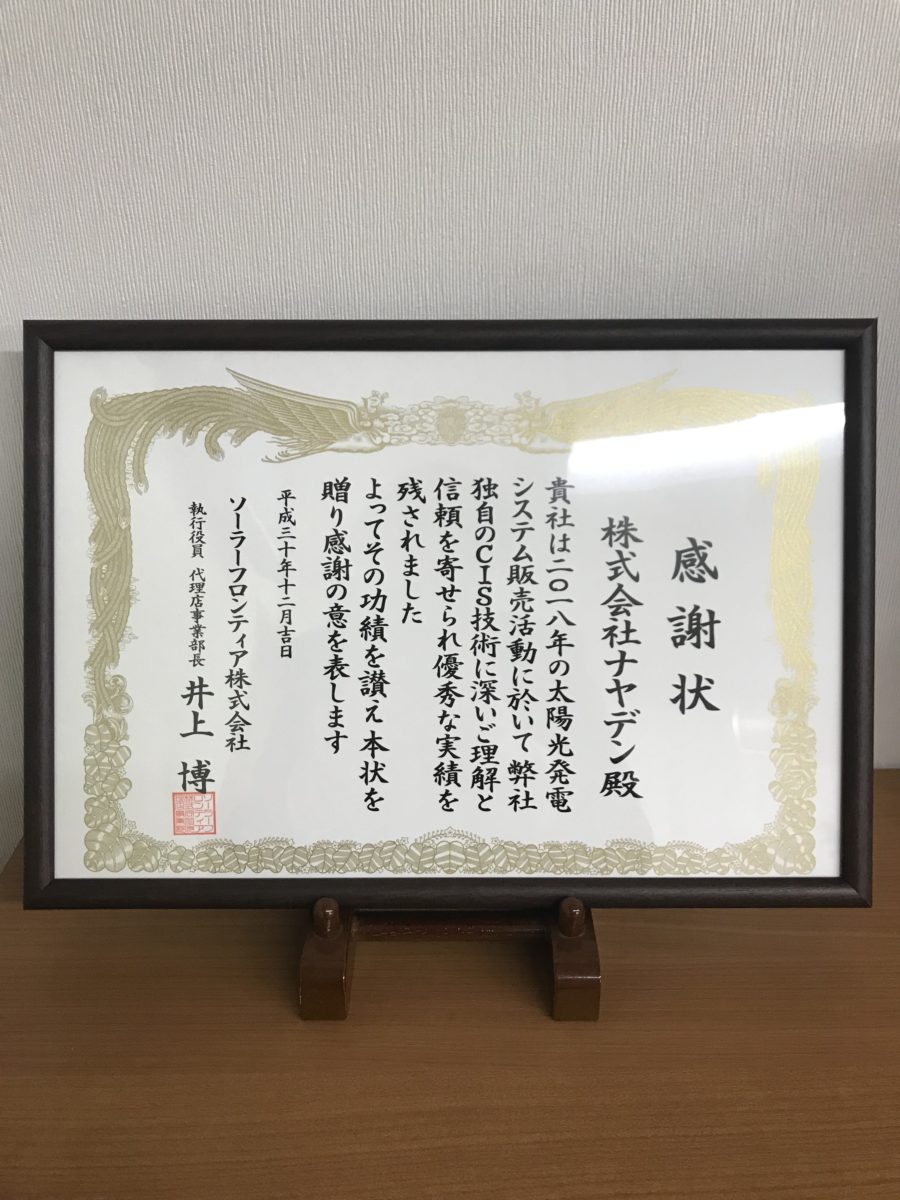 感謝状
株式会社ナヤデン殿
貴社は二〇一八年の太陽光発電
システム販売活動に於いて弊社
独自のCIS技術に深いご理解と
信頼を寄せられ優秀な実績を
残されました
よってその功績を讃え本状を
贈り感謝の意を表します
平成三十年十二月吉日
ソーラーフロンティア株式会社
執行役員 代理店事業部長 井上 博